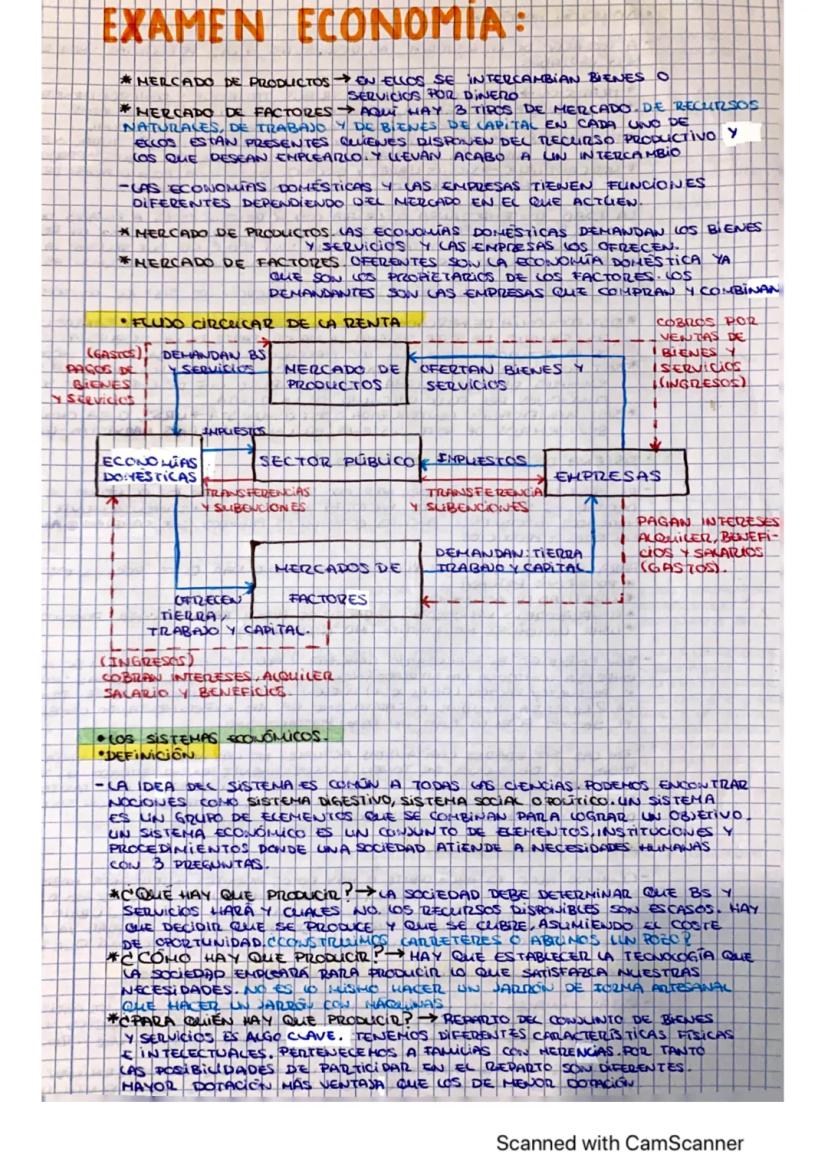 EXAMEN ECONOMÍA:
* MERCADO DE PRODUCTOS → EN ELLOS SE INTERCAMBIAN BIENES O
SERVICIOS POR DINERO
* MERCADO DE FACTORES → AQUÍ HAY 3 TIPOS DE MERCADO. DE RECURSOS
NATURALES, DE TRABAJO Y DE BIENES DE CAPITAL EN CADA UNO DE
ELLOS ESTÁN PRESENTES QUIENES DISPONEN DEL RECURSO PRODUCTIVO Y
LOS QUE DESEAN EMPLEARLO. Y LLEVAN ACABO A UN INTERCAMBIO
- LAS ECONOMÍAS DOMÉSTICAS Y LAS EMPRESAS TIENEN FUNCIONES
DIFERENTES DEPENDIENDO DEL MERCADO EN EL QUE ACTUEN.
* MERCADO DE PRODUCTOS. LAS ECONOMÍAS DOMÉSTICAS DEMANDAN LOS BIENES
Y SERVICIOS Y LAS EMPRESAS LOS OFRECEN.
* MERCADO DE FACTORES. OFERENTES SON LA ECONOMÍA DOMÉSTICA YA
QUE SON LOS PROPIETARIOS DE LOS FACTORES. LOS
DEMANDANTES SON LAS EMPRESAS QUE COMPRAN Y COMBINAN
• FLUJO CIRCULAR DE LA RENTA
(GASTOS)
PAGOS DE
BIENES
Y SERVICIOS
DEMANDAN BS
Y SERVICIOS
MERCADO DE
PRODUCTOS
OFERTAN BIENES Y
SERVICIOS
COBROS POR
VENTAS DE
BIENES Y
SERVICIOS
(INGRESOS)
IMPUESTOS
ECONOMÍAS
DOMÉSTICAS
SECTOR PÚBLICO
IMPUESTOS
EMPRESAS
TRANSFERENCIAS
Y SUBENCIONES
TRANSFERENCIA
Y SUBENCIONES
PAGAN INTERESES
ALQUILER, BENEFI-
CIOS Y SALARIOS
(GASTOS).
MERCADOS DE
FACTORES
DEMANDAN: TIERRA
TRABAJO Y CAPITAL
OFRECEN
TIERRA,
TRABAJO Y CAPITAL.
(INGRESOS)
COBRAN INTERESES, ALQUILER
SALARIO Y BENEFICIOS.
• LOS SISTEMAS ECONÓMICOS.
• DEFINICIÓN
- LA IDEA DEL SISTEMA ES COMÚN A TODAS LAS CIENCIAS. PODEMOS ENCONTRAR
NOCIONES COMO SISTEMA DIGESTIVO, SISTEMA SOCIAL O POLÍTICO. UN SISTEMA
ES UN GRUPO DE ELEMENTOS QUE SE COMBINAN PARA LOGRAR UN OBJETIVO.
UN SISTEMA ECONÓMICO ES UN CONJUNTO DE ELEMENTOS, INSTITUCIONES Y
PROCEDIMIENTOS DONDE UNA SOCIEDAD ATIENDE A NECESIDADES HUMANAS
CON 3 PREGUNTAS.
* ¿QUÉ HAY QUE PRODUCIR? → LA SOCIEDAD DEBE DETERMINAR QUE BS Y
SERVICIOS HARÁ Y CUALES NO. LOS RECURSOS DISPONIBLES SON ESCASOS. HAY
QUE DECIDIR QUE SE PRODUCE Y QUE SE CUBRE, ASUMIENDO EL COSTE
DE OPORTUNIDAD. ¿CONSTRUIMOS CARRETERES O ABRIMOS UN POZO?
* ¿CÓMO HAY QUE PRODUCIR? → HAY QUE ESTABLECER LA TECNOLOGÍA QUE
LA SOCIEDAD EMPLEARÁ PARA PRODUCIR LO QUE SATISFARZA NUESTRAS
NECESIDADES. NO ES LO MISMO HACER UN JARRÓN DE FORMA ARTESANAL
QUE HACER UN JARRÓN CON MAQUINAS
* ¿PARA QUIÉN HAY QUE PRODUCIR? → REPARTO DEL CONJUNTO DE BIENES
Y SERVICIOS ES ALGO CLAVE. TENEMOS DIFERENTES CARACTERÍSTICAS FÍSICAS
E INTELECTUALES. PERTENECEMOS A FAMILIAS CON HERENCIAS. POR TANTO
LAS POSIBILIDADES DE PARTICIPAR EN EL REPARTO SON DIFERENTES.
MAYOR DOTACIÓN MÁS VENTAJA QUE LOS DE MENOR DOTACIÓN
Scanned with CamScanner